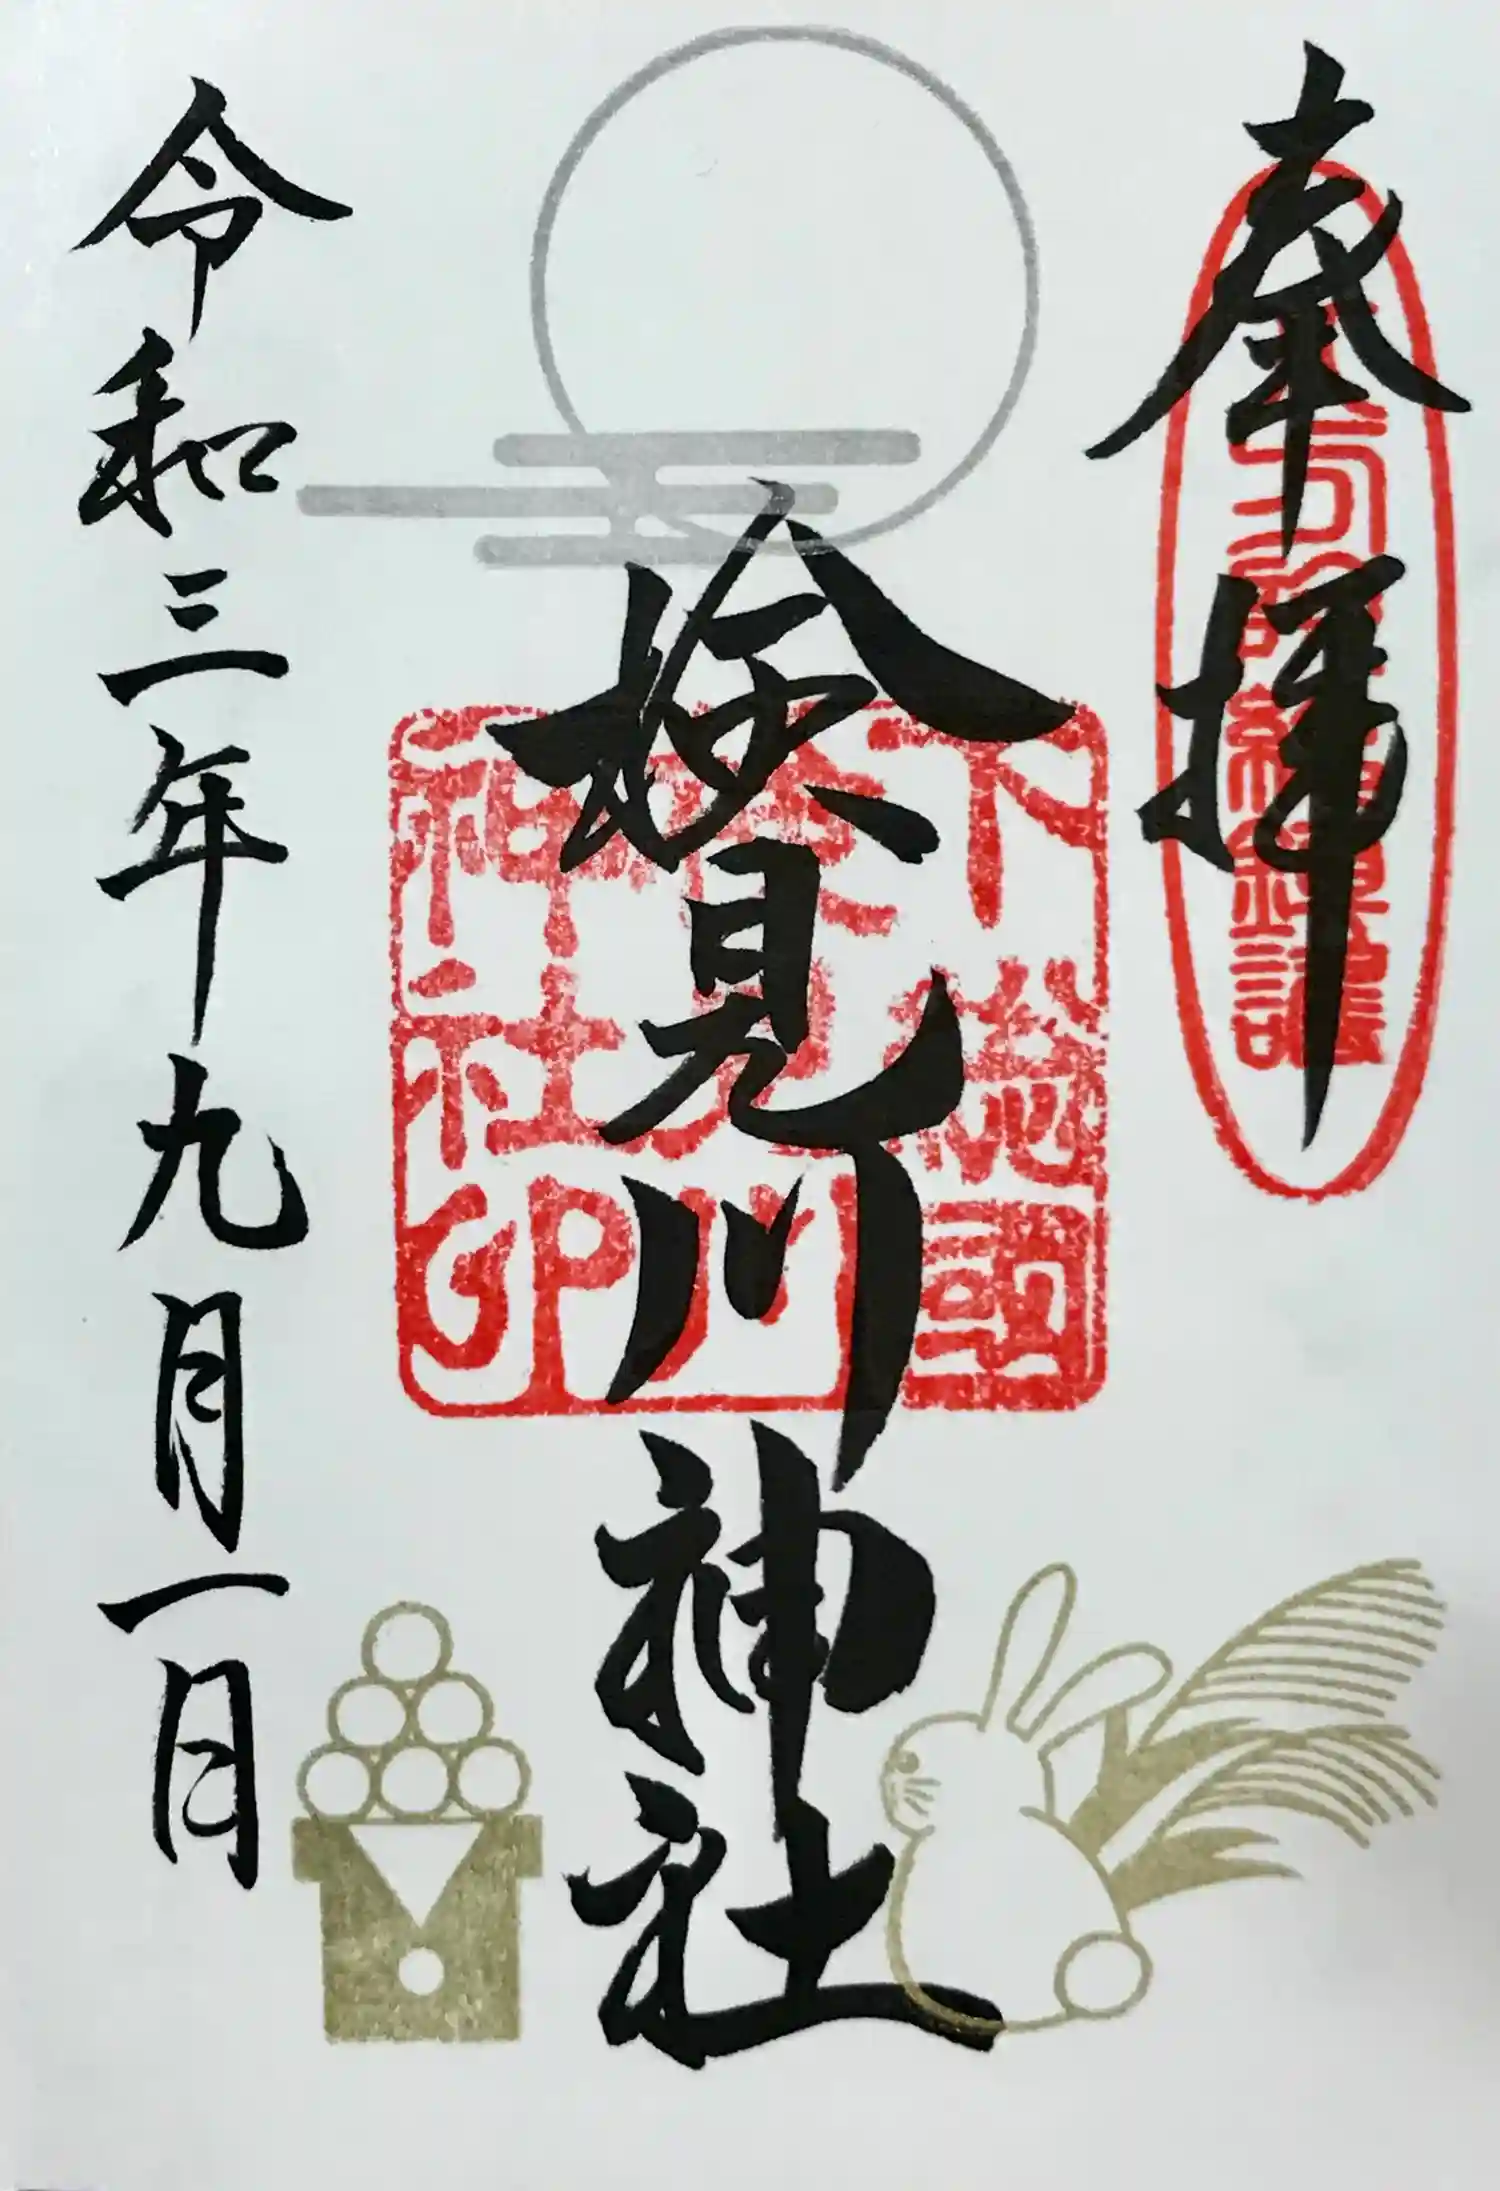 奉拝
検見川神社
令和三年九月一日
下総國
検見川
神社印